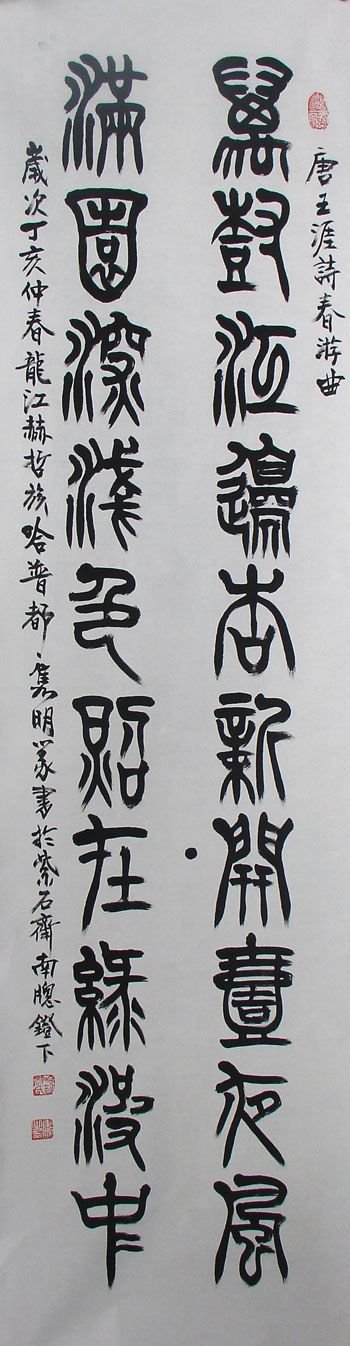 唐王涯詩春游曲
萬樹江邊杏新開壹夜風
滿園深淺色照在綠波中
歲次丁亥仲春龍江赫哲族哈普都·隽明篆書於紫石齋南牕鐙下